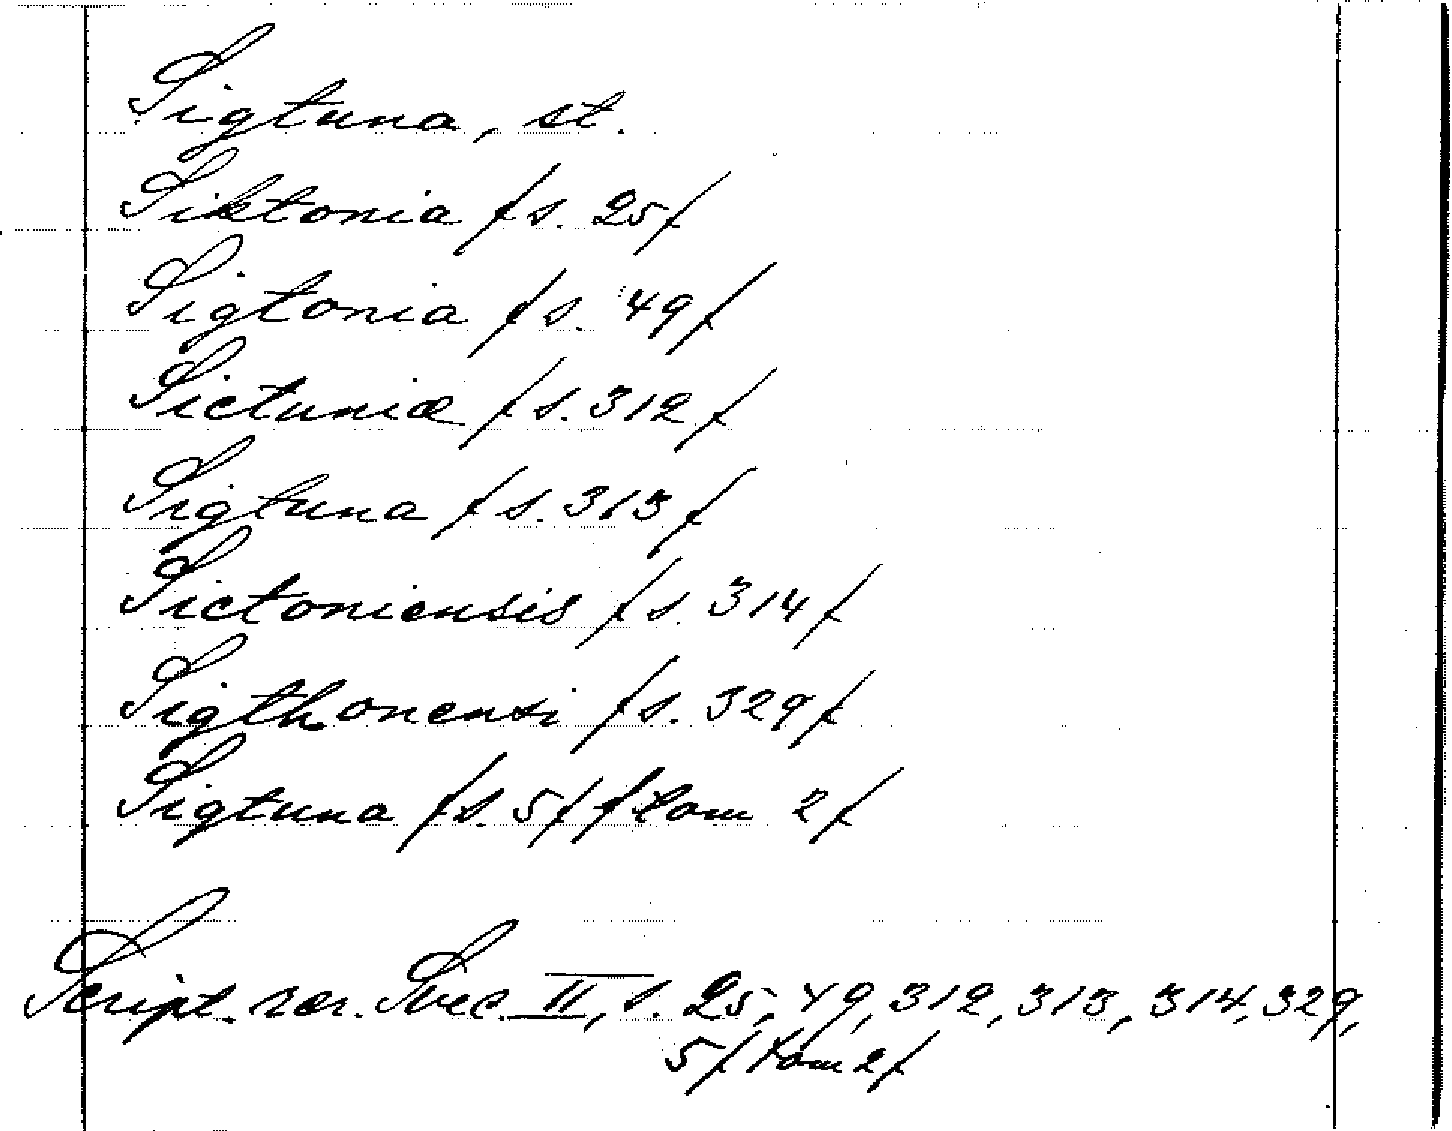 Sigtuna, st.
Siktonia /s. 25/
Sigtonia /s. 49/
Sictuniæ /s. 312/
Sigtuna /s. 313/
Sictoniensis /s. 314/
Sigthonensi /s. 329/
Sigtuna /s. 5/ /tom 2/
Script. rer. Svec. II, s. 25, 49, 312, 313, 314, 329,
5/tom 2/